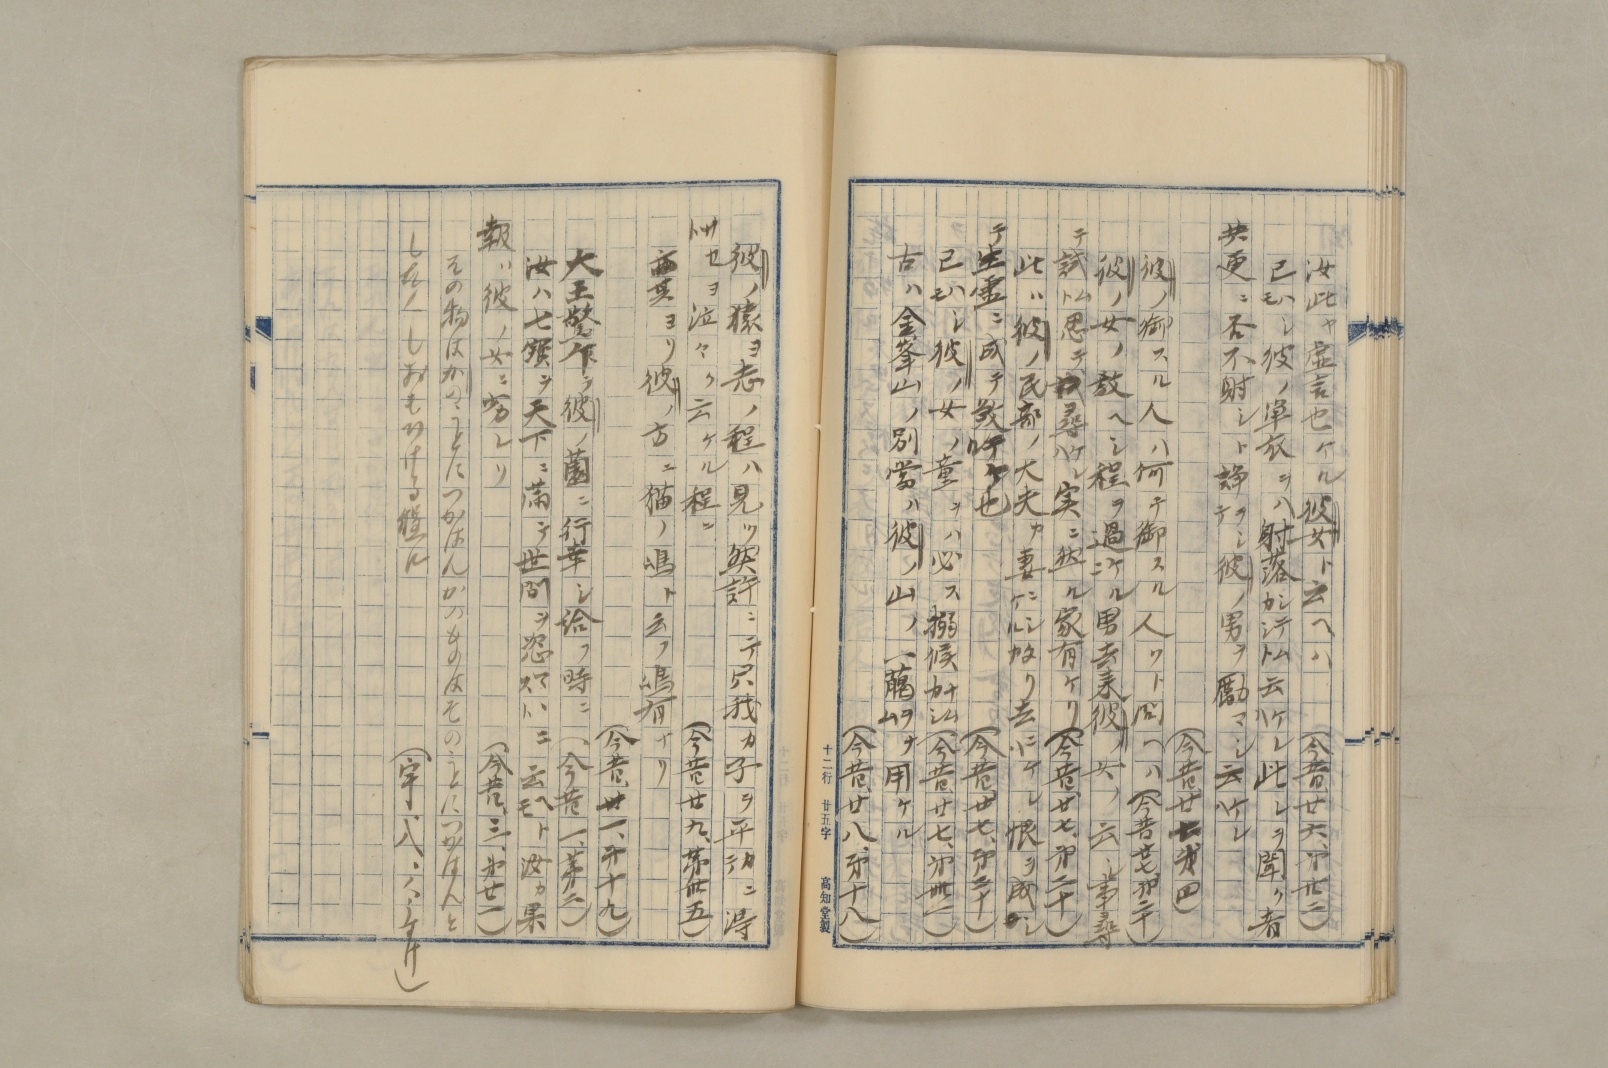 汝此ヤ虚言也ケル彼女ト云ヘハ
(今昔、廿六、第廿二)
己ハシモ彼ノ単衣ヲハ射落カシテムト云ケレハ此レヲ聞ク者
共更ニ否不射シト諍ヲシテ彼ノ男ヲ励マシ云ケレハ
(今昔廿七第四)
彼ノ御スル人ハ何テ御スル人ソト問ヘハ(今昔廿七、第二十)
彼ノ女ノ教ヘシ程ヲ過ニケル男去来彼ノ女ノ云シ事尋
テ試ムト思テ尋ケレハ実ニ然ル家有ケリ(今昔、廿七、第二十)
此ハ彼ノ民部ノ大夫カ妻ニシケル故リ去ニケレハ恨ヲ成シ
テ生霊ニ成テ殺テケル也
(今昔、廿七、第二十)
己ハシモ彼ノ女ノ童ヲハ必ス搦候ナムカシ(今昔、廿七、第卅一)
古ハ金峯山ノ別当ハ彼ノ山ノ一﨟ヲナム用ケル
(今昔、廿八、第十八)
十二行 廿五字 高知堂製
彼ノ猿ヨ志ノ程ハ見ツ然許ニテ只我カ子ヲ平カニ得
サセヨ泣々ク云ケル程ニ
(今昔廿九、第卅五)
其ヨリ彼ノ方ニ猫ノ嶋ト云フ嶋有ケリ
(今昔、卅一、第十九)
大王驚乍ラ彼ノ薗ニ行幸シ給フ時ニ
(今昔一、第六)
汝ハ七鏡ヲ天下ニ満テ世間ヲ恣ニスト云ヘトモ汝カ果
報ハ彼ノ女ニ劣レリ
(今昔、三、第廿一)
その物はかのうとにつかはんかのものはそのうとにつかはんと